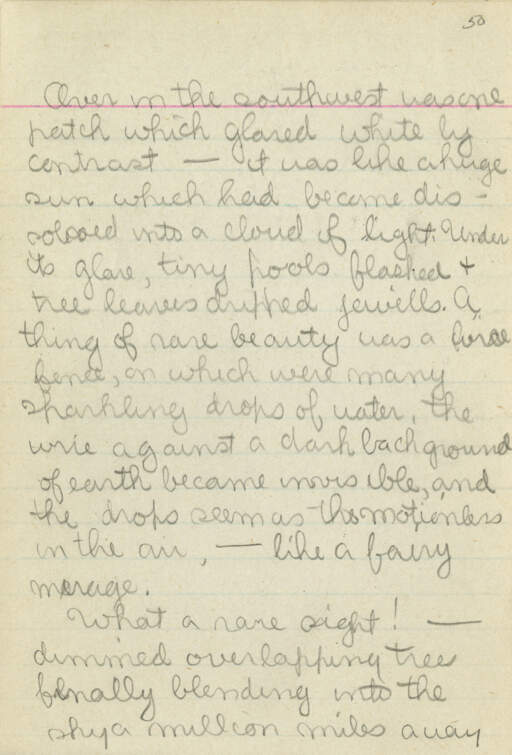 50
Over in the southwest was one
patch which glared white by
contrast — it was like a huge
sun which had become dis-
solved into a cloud of light. Under
its glare, tiny pools flashed +
tree leaves dripped jewells. A
thing of rare beauty was a
fence, on which were many
sparkling drops of water, the
wrie against a dark background
of earth became invisible, and
the drops seem as tho motionless
in the air, — like a fairy
merage.
What a rare sight! —
dimmed overlapping trees
finally blending into the
sky a million miles away